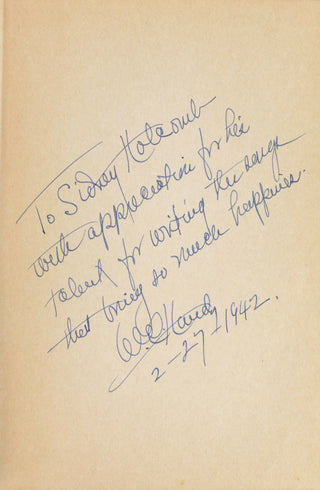 To Sidney Holcomb
with appreciation for his
talent for writing the songs
that bring so much happiness.
WC Handy
2-27-1942.